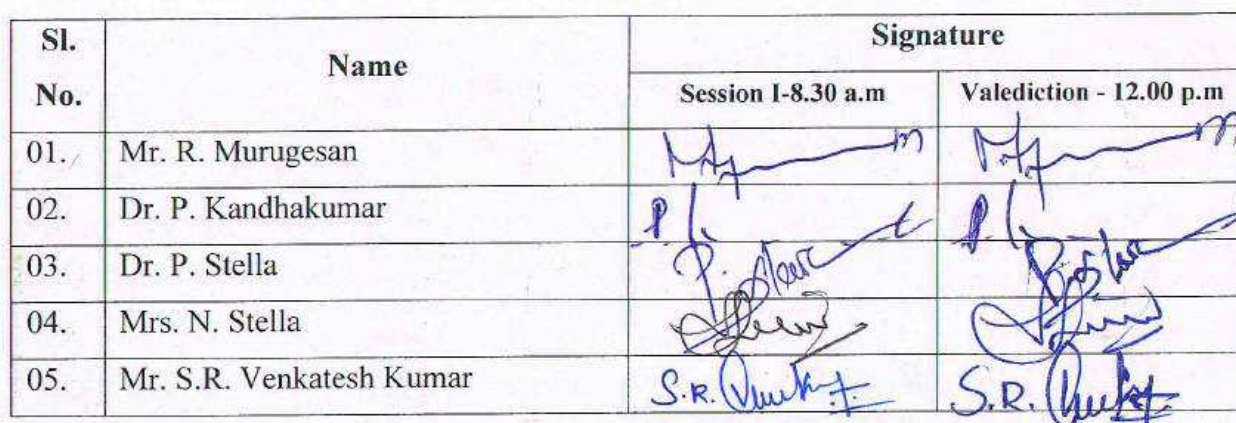 Sl. No.
Name
Signature
Session I-8.30 a.m
Valediction - 12.00 p.m
01. Mr. R. Murugesan
02. Dr. P. Kandhakumar
03. Dr. P. Stella P. Stella P. Stella
04. Mrs. N. Stella
05. Mr. S.R. Venkatesh Kumar S.R. S.R.